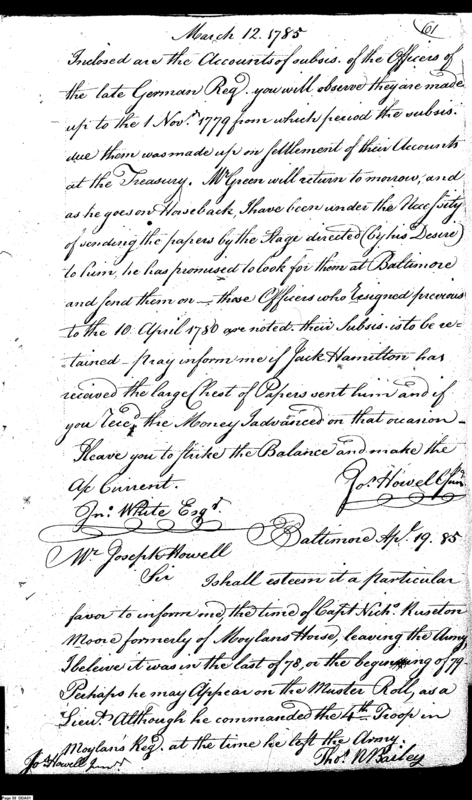 61
March 12. 1785
Inclosed are the Accounts of subsis. of the Officers of
the late German Reg. you will observe they are made
up to the 1 Novr. 1779 from which period the subsis.
due them was made up on settlement of their Accounts
at the Treasury. Mr Green will return to morrow, and
as he goes on Horseback, I have been under the Necessity
of sending the papers by the Stage directed (by his Desire)
to him, he has promised to look for them at Baltimore
and send them on — those Officers who Resigned previous
to the 10 April 1780 are noted. their Subsis. is to be re-
tained — pray inform me if Jack Hamilton has
received the large Chest of Papers sent him and if
you Recd. the Money I advanced on that occasion —
I leave you to strike the Balance and make the
A/c Current.
Jos. Howell Junr.
Jno. White Esqr.
Baltimore Apl. 19. 85
Mr. Joseph Howell
Sir I shall esteem it a particular
favor to inform me, the time of Capt Nichs. Ruxton
Moore formerly of Moylans Horse, leaving the Army,
I beleive it was in the last of 78, or the beginning of 79-
Perhaps he may Appear on the Muster Roll, as a
Lieut. Although he commanded the 4th. Troop in
Moylan's Reg. at the time he left the Army.
Jos. Howell Junr
Thos. R Bailey